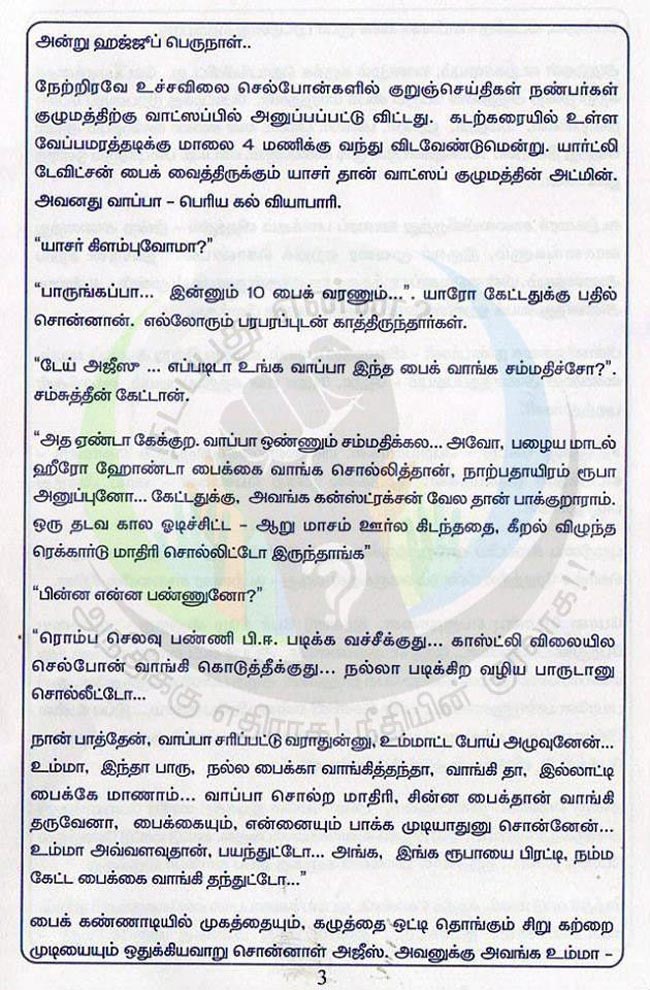 அன்று ஹஜ்ஜுப் பெருநாள்..
நேற்றிரவே உச்சவிலை செல்போன்களில் குறுஞ்செய்திகள் நண்பர்கள்
குழுமத்திற்கு வாட்ஸப்பில் அனுப்பப்பட்டு விட்டது. கடற்கரையில் உள்ள
வேப்பமரத்தடிக்கு மாலை 4 மணிக்கு வந்து விடவேண்டுமென்று. யார்ட்லி
டேவிட்சன் பைக் வைத்திருக்கும் யாசர் தான் வாட்ஸப் குழுமத்தின் அட்மின்.
அவனது வாப்பா – பெரிய கல் வியாபாரி.
“யாசர் கிளம்புவோமா?”
“பாருங்கப்பா... இன்னும் 10 பைக் வரணும்...”. யாரோ கேட்டதுக்கு பதில்
சொன்னான். எல்லோரும் பரபரப்புடன் காத்திருந்தார்கள்.
“டேய் அஜீஸு ... எப்படிடா உங்க வாப்பா இந்த பைக் வாங்க சம்மதிச்சோ?”.
சம்சுத்தீன் கேட்டான்.
“அத ஏண்டா கேக்குற. வாப்பா ஒண்ணும் சம்மதிக்கல... அவோ, பழைய மாடல்
ஹீரோ ஹோண்டா பைக்கை வாங்க சொல்லித்தான், நாற்பதாயிரம் ரூபா
அனுப்புனோ... கேட்டதுக்கு, அவங்க கன்ஸ்ட்ரக்சன் வேல தான் பாக்குறாராம்.
ஒரு தடவ கால ஓடிச்சிட்ட – ஆறு மாசம் ஊர்ல கிடந்ததை, கீறல் விழுந்த
ரெக்கார்டு மாதிரி சொல்லிட்டோ இருந்தாங்க”
“பின்ன என்ன பண்ணுனோ?”
“ரொம்ப செலவு பண்ணி பி.ஈ. படிக்க வச்சீக்குது... காஸ்ட்லி விலையில
செல்போன் வாங்கி கொடுத்தீக்குது... நல்லா படிக்கிற வழிய பாருடானு
சொல்லீட்டோ...
நான் பாத்தேன், வாப்பா சரிப்பட்டு வராதுன்னு, உம்மாட்ட போய் அழுவுனேன்...
உம்மா, இந்தா பாரு, நல்ல பைக்கா வாங்கித்தந்தா, வாங்கி தா, இல்லாட்டி
பைக்கே மாணாம்... வாப்பா சொல்ற மாதிரி, சின்ன பைக்தான் வாங்கி
தருவேனா, பைக்கையும், என்னையும் பாக்க முடியாதுனு சொன்னேன்...
உம்மா அவ்வளவுதான், பயந்துட்டோ... அங்க, இங்க ரூபாயை பிரட்டி, நம்ம
கேட்ட பைக்கை வாங்கி தந்துட்டோ...”
பைக் கண்ணாடியில் முகத்தையும், கழுத்தை ஒட்டி தொங்கும் சிறு கற்றை
முடியையும் ஒதுக்கியவாறு சொன்னாள் அஜீஸ். அவனுக்கு அவங்க உம்மா –
3
நடப்பது என்ன?
அநீதிக்கு எதிராக! நீதியின் குரலாக!!